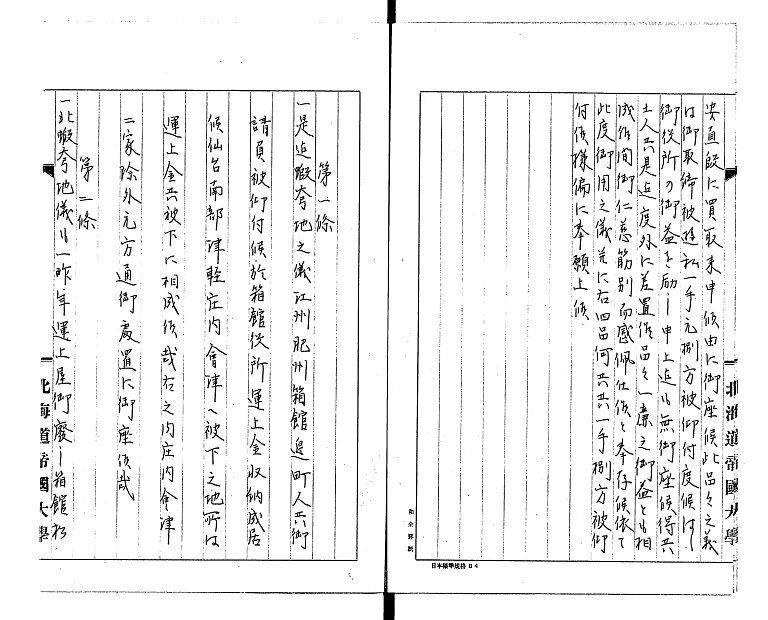 安直段に買取来申候由に御座候此品々之義
は御取締被遊私一手元捌方被仰付度候はゝ
御役所の御益を励し申上迄も無御座候得共
土人共是迄度外に差置候品々一廉之御益とも相
成候間御仁慈筋別而感佩仕候と奉存候依て
此度御用之儀並に右四品何共共一手捌方被仰
付候様偏に奉願上候
北海道帝國大學
日本標準規格 B4
第一條
一是迄蝦夷地之儀江州肥州箱館邊町人共御
請負被仰付候於箱館役所運上金収納成居
候仙台南部津軽庄内會津へ被下之地所は
運上金共被下に相成候哉右之内庄内會津
二家除外元方通御處置に御座候哉
第二條
一北蝦夸地儀は一昨年運上屋御廢し箱館松
北海道帝國大學